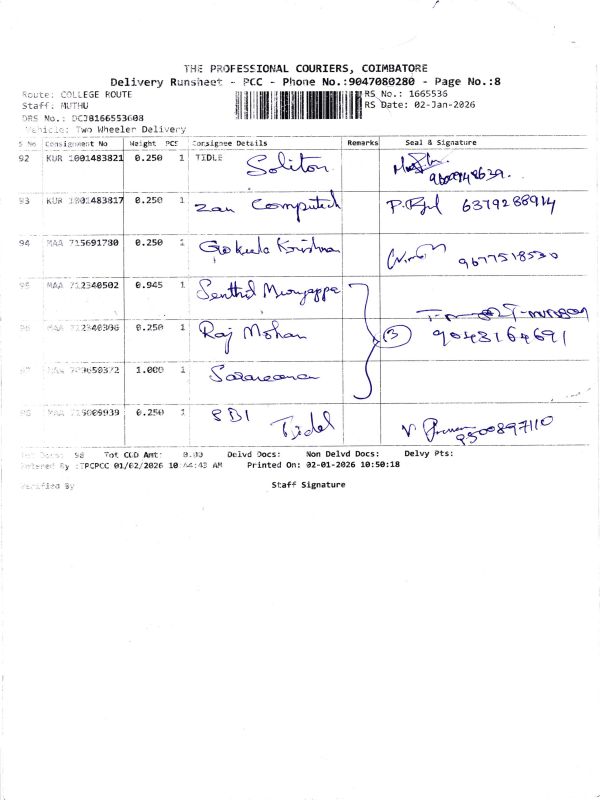 THE PROFESSIONAL COURIERS, COIMBATORE
Delivery Runsheet - PCC - Phone No.:9047080280 - Page No.:8
Route: COLLEGE ROUTE RS No.: 1665536
Staff: MUTHU RS Date: 02-Jan-2026
DRS No.: DCJB166553608
Vehicle: Two Wheeler Delivery
S No Consignment No Weight PCS Consignee Details Remarks Seal & Signature
92 KUR 1001483821 0.250 1 TIDLE Soliton
93 KUR 1001483817 0.250 1 Zan Computech 6379288914
94 MAA 715691780 0.250 1 Gokula Krishna 9677518530
95 MAA 712340502 0.945 1 Senthil
96 0.250 1 Raj Mohan 3 9043164691
97 1.000 1
98 0.250 1 SBI Tidel V 9500897110
98 Tot COD Amt: 0.00 Delvd Docs: Non Delvd Docs: Delvy Pts:
Entered By :TPCPCC 01/02/2026 10 Printed On: 02-01-2026 10:50:18
Verified By Staff Signature